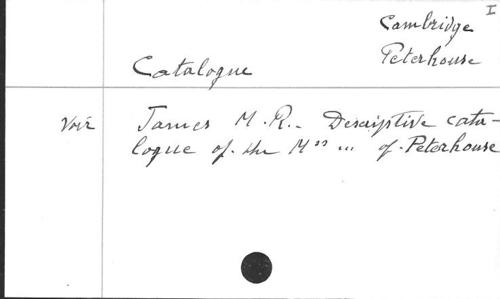 I
Cambridge
Peterhouse
Catalogue
Voir James M.R._ Descriptive cata-
logue of the Mss ... of Peterhouse